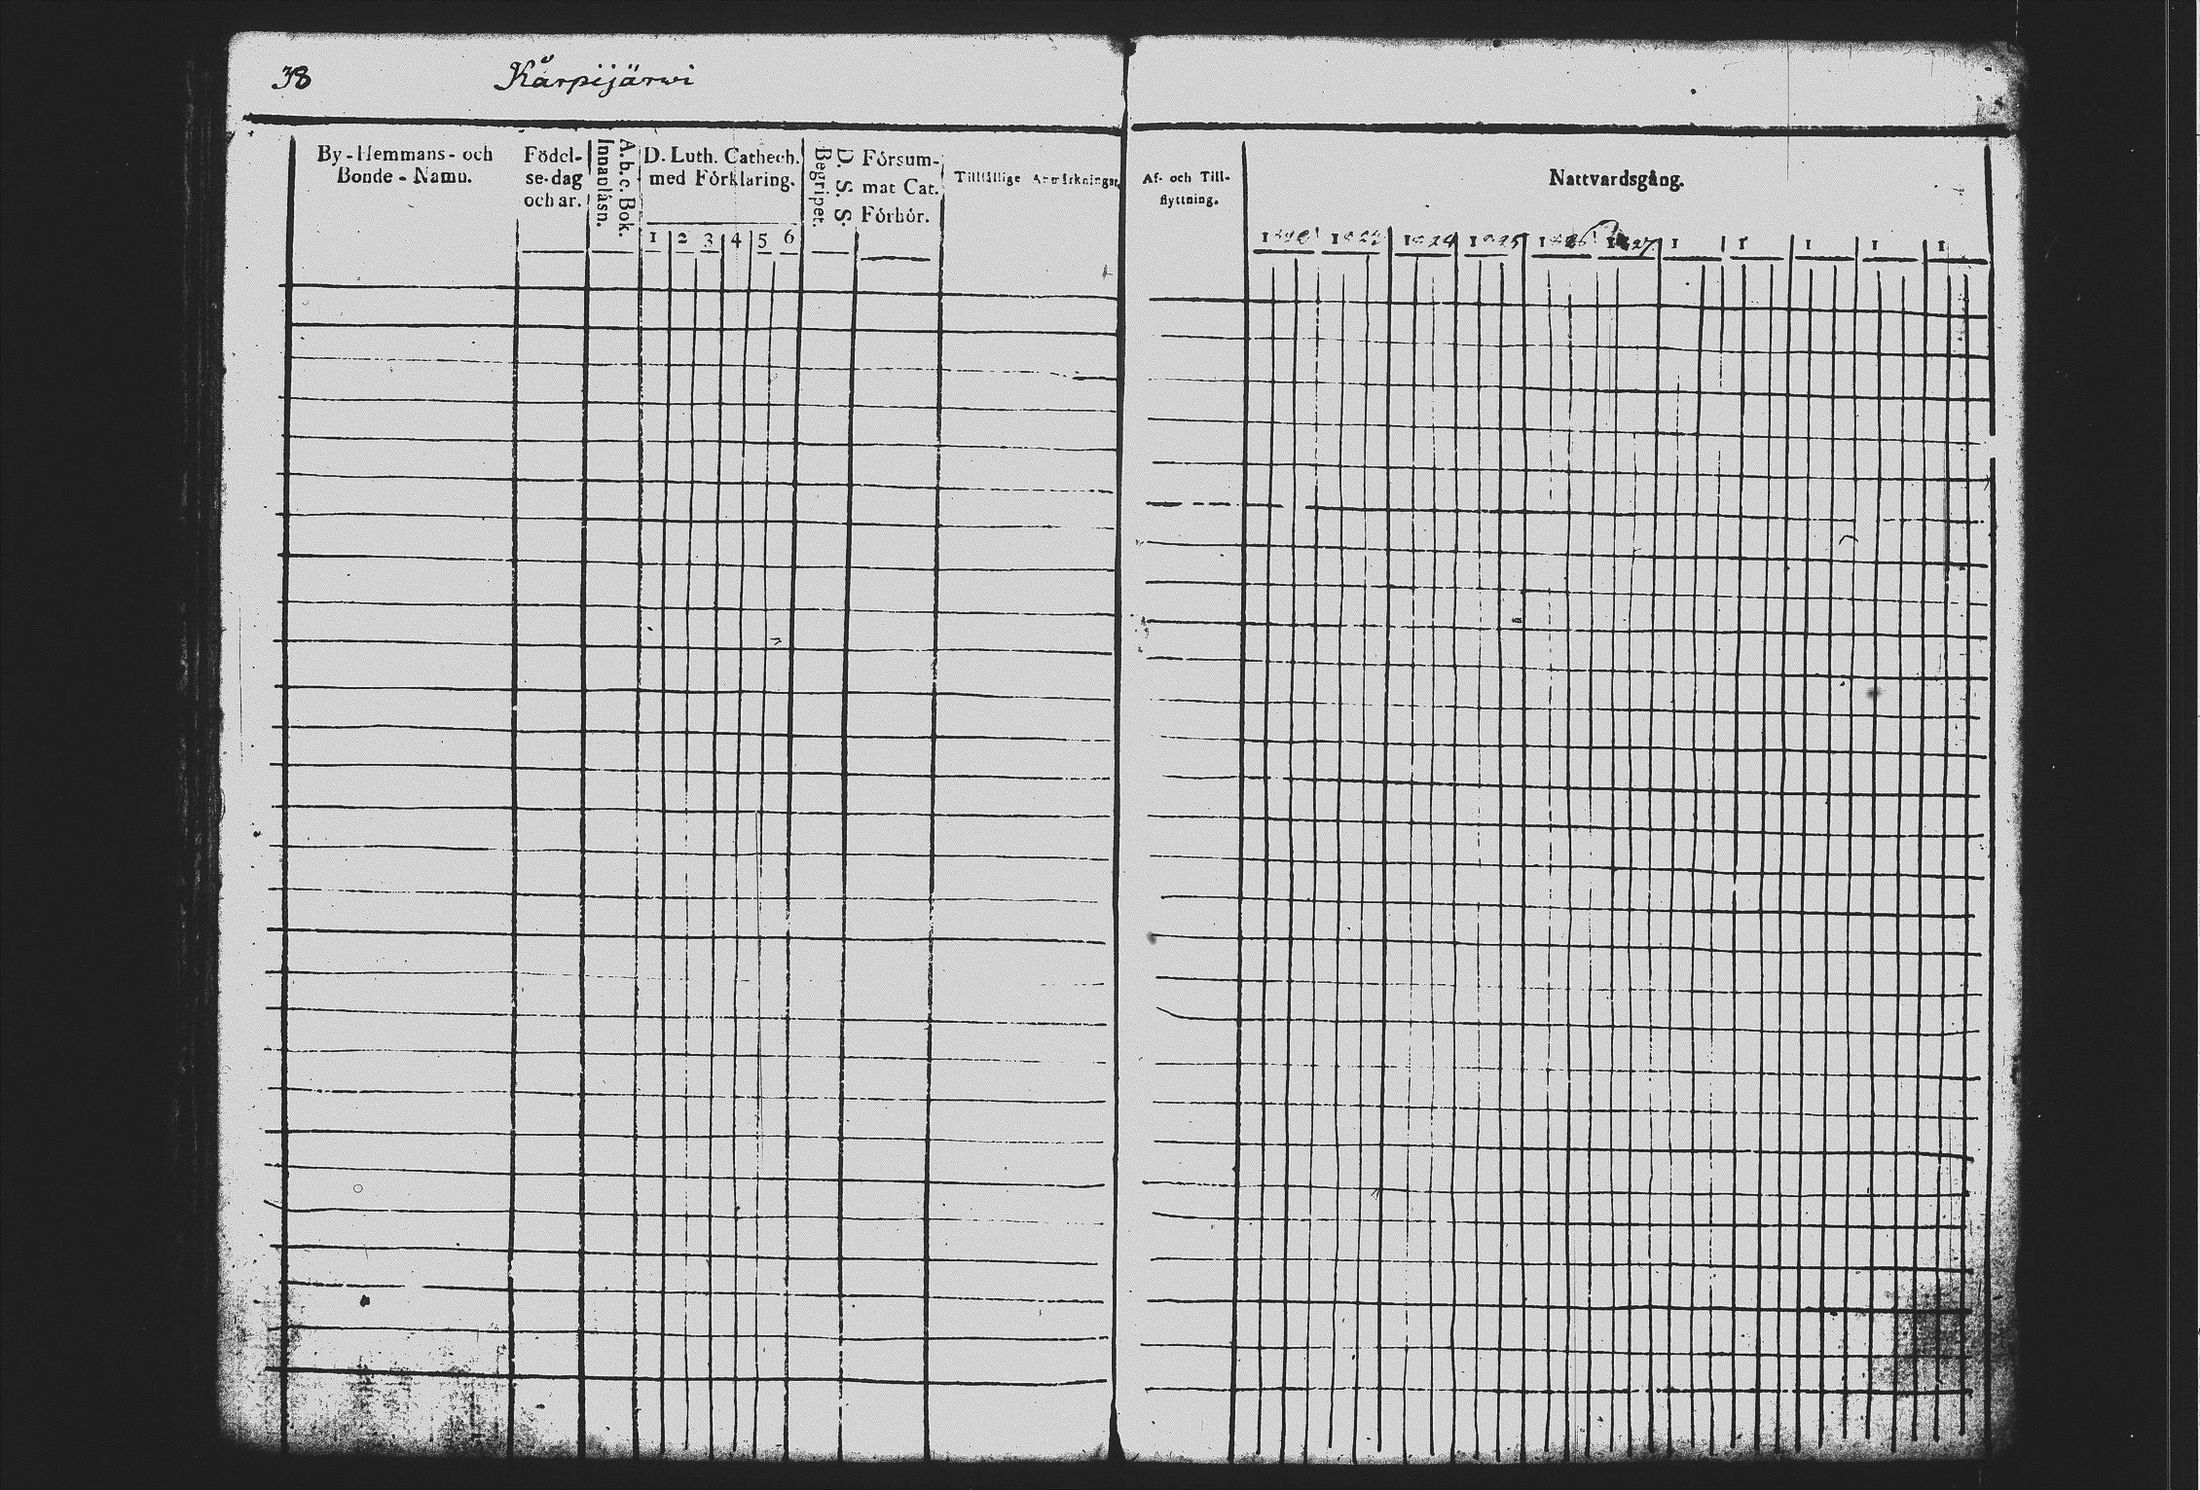 38 Kärpijärwi
By-Hemmans- och
Bonde-Namn.
Födel-
se-dag
och ar.
A.b.c. Bok.
Innanläsn.
D. Luth. Cathech.
med Förklaring.
1 2 3 4 5 6
D. S. S.
Begripet.
Försum-
mat Cat.
Förhör.
Tillfällige Anmärkningar.
Af- och Till-
flyttning.
Nattvardsgång.
1823 1824 1825 1826 1827 1 1 1 1 1